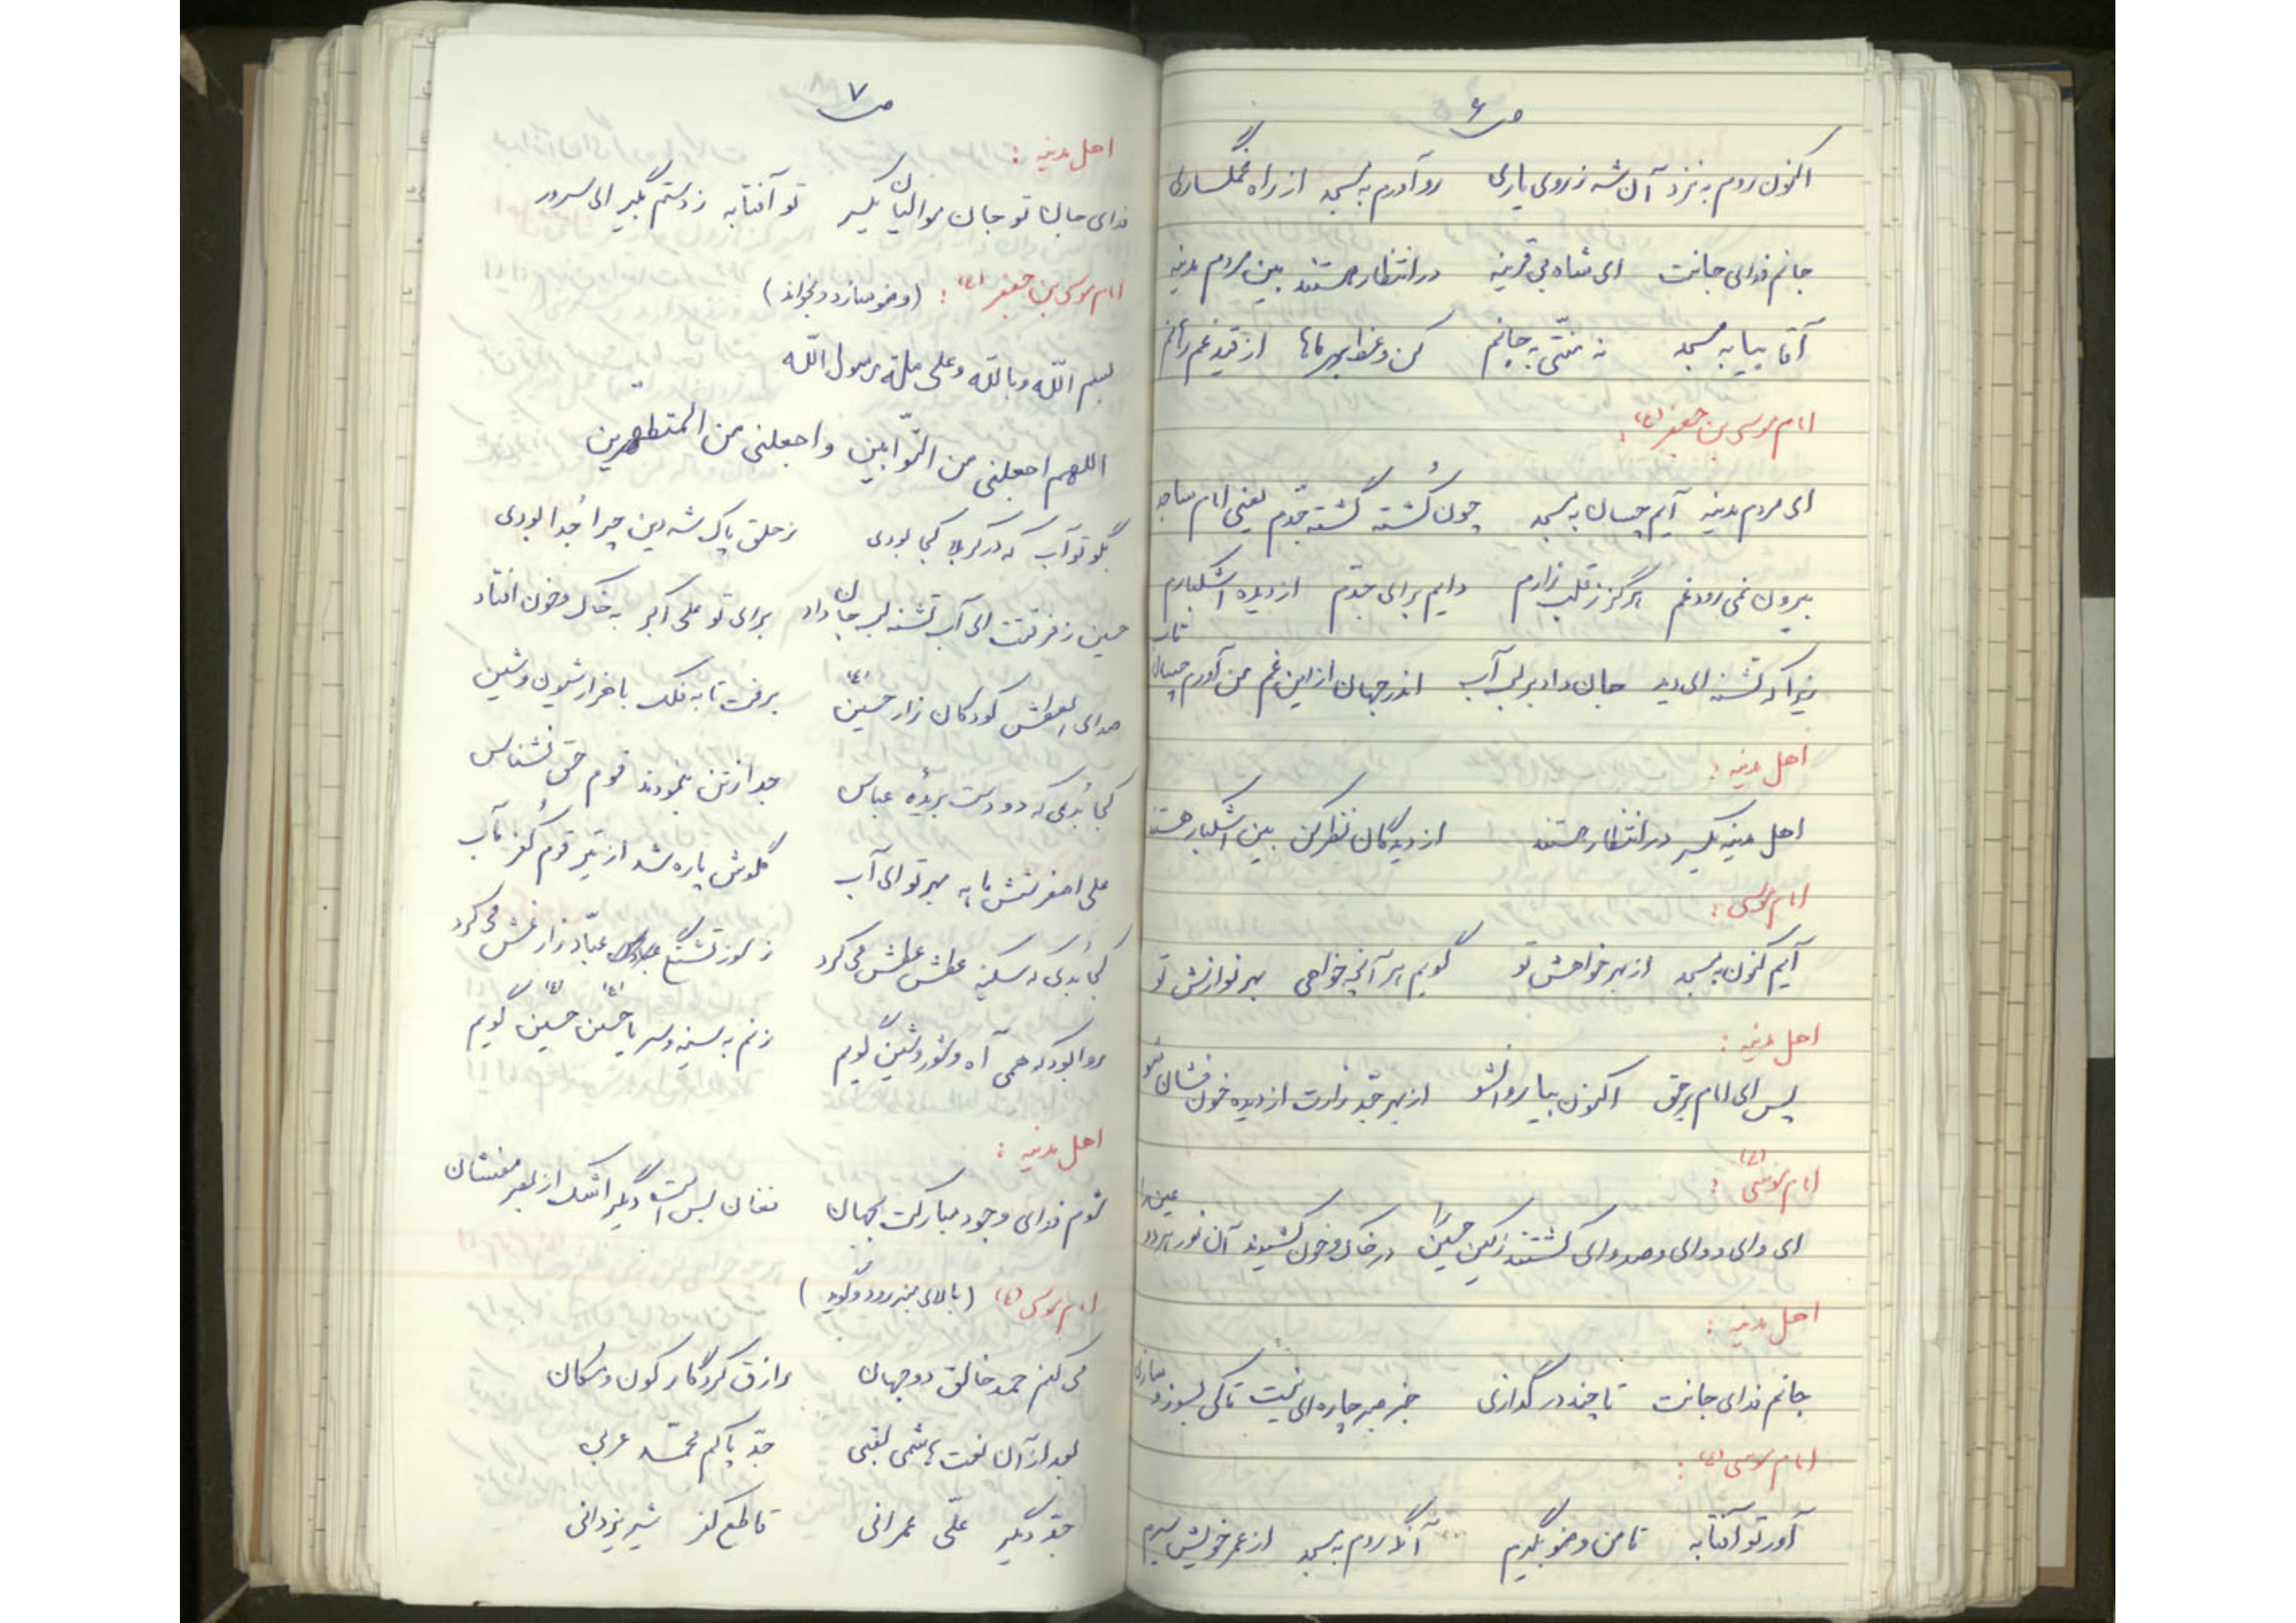 ص ۶
اکنون روم به نزد آن شه ز روی یاری رو آورم به مسجد از راه غمگساری
جانم فدای جانت ای شاه بی قرینه در انتظار هستند بین مردم مدینه
آقا بیا به مسجد نه منتی به جانم کن وعظ از بهر ماها از قید غم رهانم
امام موسی بن جعفر (ع):
ای مردم مدینه آیم چسان به مسجد چون کُشته گشته جدّم یعنی امام ساجد
بیرون نمی رود غم هرگز ز قلب زارم دایم برای جدّم از دیده اشکبارم
زیرا که تشنه ای دید جان داد بر لب آب اندر جهان از این غم من آورم چسان تاب
اهل مدینه:
اهل مدینه یکسر در انتظار هستند از دیدگان نظر کن بین اشکبار هستند
امام موسی:
آیم کنون به مسجد از بهر خواهش تو گویم هر آنچه خواهی بهر نوازش تو
اهل مدینه:
پس ای امام برحق اکنون بیا روان شو از بهر جدّ زارت از دیده خون فشان شو
امام موسی (ع):
ای وای دو وای و صد وای کشتند ز کین حسین را در خاک و خون کشیدند آن نور هر دو عین را
اهل مدینه:
جانم فدای جانت تا چند در گدازی جز صبر چاره ای نیست تا کی بسوز و سازی
امام موسی (ع):
آور تو آفتابه تا من وضو بگیرم آنگه روم به مسجد از عمر خویش سیرم
ص ۷
اهل مدینه:
فدای جان تو جان موالیان یکسر تو آفتابه ز دستم بگیر ای سرور
امام موسی بن جعفر (ع): (وضو سازد و بخواند)
بسم الله و بالله و علی ملة رسول الله
اللهم اجعلنی من التّوابین و اجعلنی من المتطهرین
بگو تو آب که در کربلا کجا بودی ز حلق پاک شه دین چرا جُدا بودی
حسین ز فرقتت ای آب تشنه لب جان داد برای تو علی اکبر به خاک و خون افتاد
صدای العطش کودکان زار حسین (ع) برفت تا به فلک با هزار شیون و شین
کجا بُدی که دو دست بریدهٔ عباس جدا ز تن بنمودند قوم حق نشناس
علی اصغر شش ماهه بهر تو ای آب گلوش پاره شد از تیر قوم کُفر مآب
کجا بُدی که سکینه عطش عطش می کرد ز سوز تشنگی عبّاد زار غش می کرد
روا بود که همی آه و شور و شین گویم زنم به سینه و سر یا حسین (ع) حسین (ع) گویم
اهل مدینه:
شوم فدای وجود مبارکت بجهان فغان بس است دیگر اشک از بصر مفشان
امام موسی (ع) (بالای منبر رود و گوید)
می کنم حمد خالق دو جهان رازق کردگار کون و مکان
بعد از آن نعت هاشمی لقبی جدّ پاکم محمّد عربی
جدّ دیگر علّی عمرانی قاطع کفر شیر یزدانی